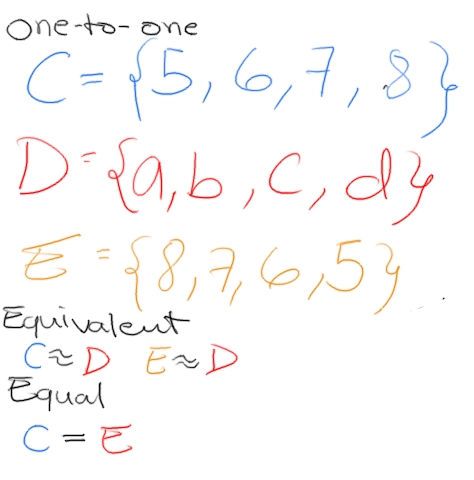 one-to-one
C = {5, 6, 7, 8}
D = {a, b, c, d}
E = {8, 7, 6, 5}
Equivalent
C ≈ D E ≈ D
Equal
C = E